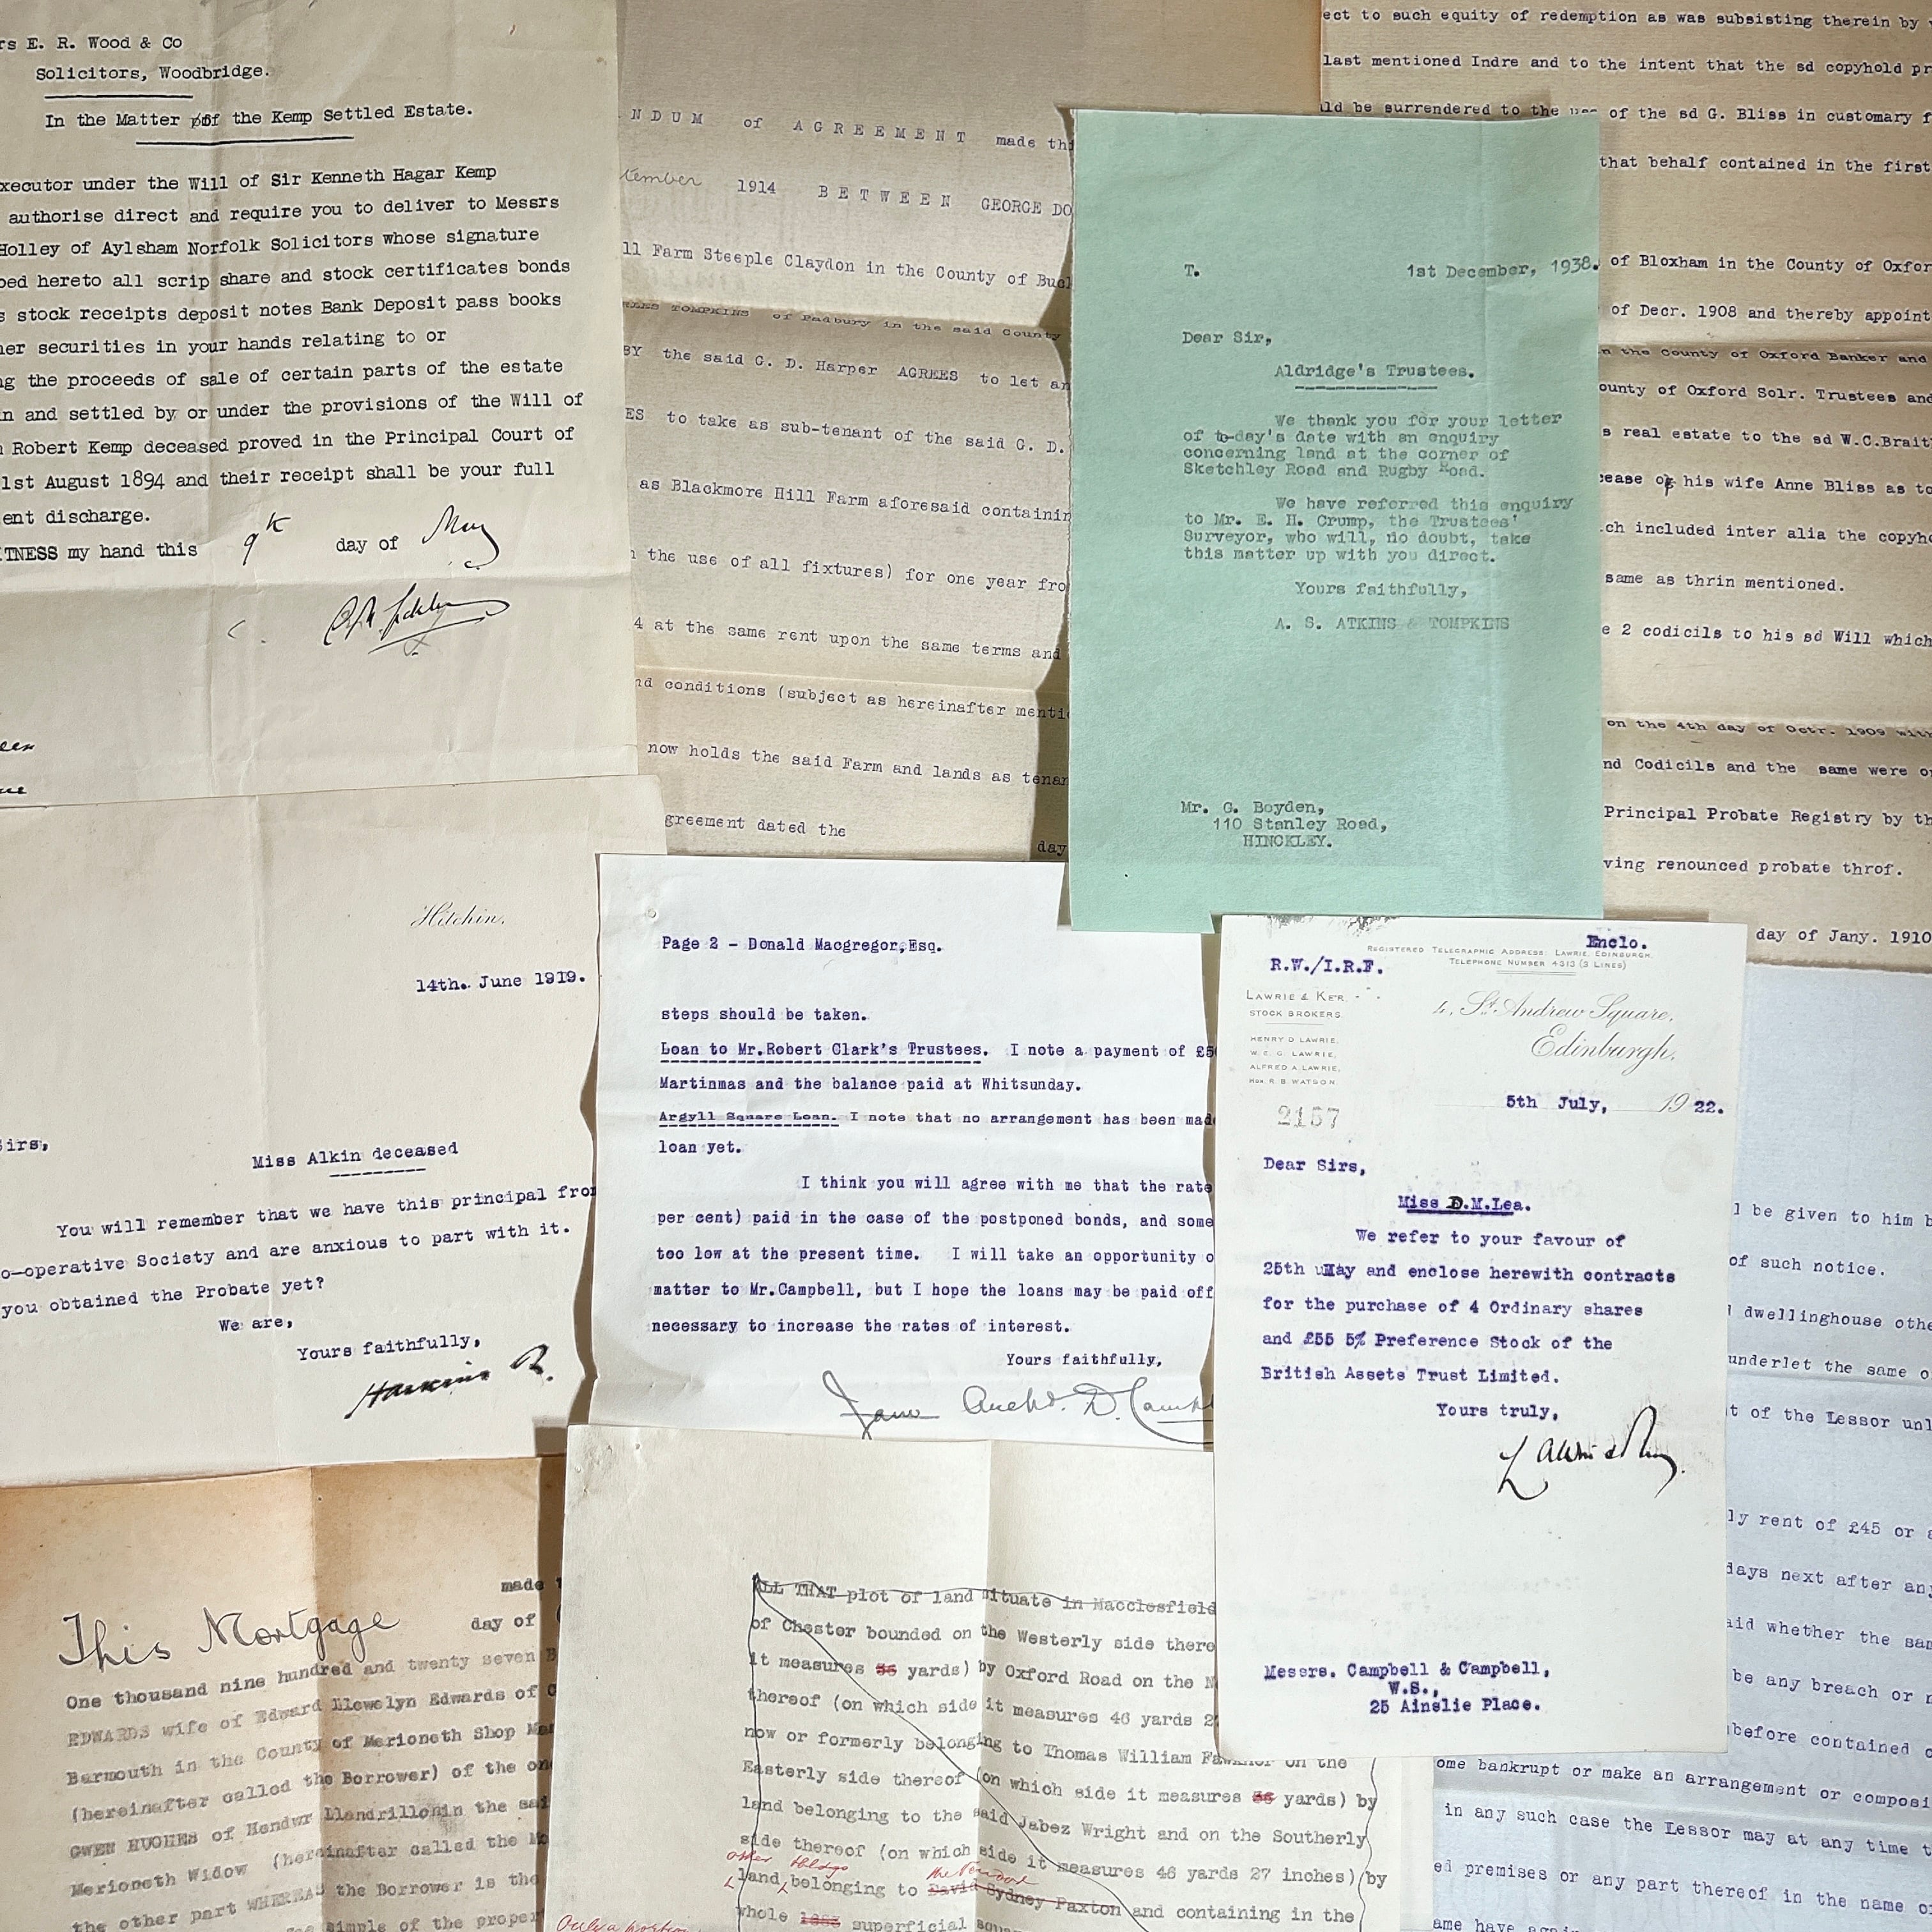 rs E. R. Wood & Co
Solicitors, Woodbridge.
In the Matter of the Kemp Settled Estate.
xecutor under the Will of Sir Kenneth Hagar Kemp
authorise direct and require you to deliver to Messrs
Holley of Aylsham Norfolk Solicitors whose signature
bed hereto all scrip share and stock certificates bonds
s stock receipts deposit notes Bank Deposit pass books
her securities in your hands relating to or
ng the proceeds of sale of certain parts of the estate
in and settled by or under the provisions of the Will of
Robert Kemp deceased proved in the Principal Court of
1st August 1894 and their receipt shall be your full
ent discharge.
ITNESS my hand this 9th day of May
NDUM of AGREEMENT made thi
tember 1914 BETWEEN GEORGE DO
ll Farm Steeple Claydon in the County of Buc
RLES TOMPKINS of Padbury in the said County
BY the said G. D. Harper AGREES to let an
ES to take as sub-tenant of the said G. D.
as Blackmore Hill Farm aforesaid containin
the use of all fixtures) for one year fro
4 at the same rent upon the same terms and
nd conditions (subject as hereinafter menti
now holds the said Farm and lands as tena
greement dated the
day
ect to such equity of redemption as was subsisting therein by
last mentioned Indre and to the intent that the sd copyhold pr
ld be surrendered to the use of the sd G. Bliss in customary f
that behalf contained in the first
of Bloxham in the County of Oxfor
of Decr. 1908 and thereby appoint
n the County of Oxford Banker and
ounty of Oxford Solr. Trustees and
s real estate to the sd W.C.Brait
cease of his wife Anne Bliss as to
ch included inter alia the copyho
same as thrin mentioned.
e 2 codicils to his sd Will which
on the 4th day of Octr. 1909 with
nd Codicils and the same were o
Principal Probate Registry by th
ving renounced probate throf.
day of Jany. 1910
T. 1st December, 1938.
Dear Sir,
Aldridge's Trustees.
We thank you for your letter
of to-day's date with an enquiry
concerning land at the corner of
Sketchley Road and Rugby Road.
We have referred this enquiry
to Mr. E. H. Crump, the Trustees'
Surveyor, who will, no doubt, take
this matter up with you direct.
Yours faithfully,
A. S. ATKINS & TOMPKINS
Mr. G. Boyden,
110 Stanley Road,
HINCKLEY.
Hitchin.
14th. June 1919.
Sirs,
Miss Alkin deceased
You will remember that we have this principal from
o-operative Society and are anxious to part with it.
you obtained the Probate yet?
We are,
Yours faithfully,
Page 2 - Donald Macgregor,Esq.
steps should be taken.
Loan to Mr.Robert Clark's Trustees. I note a payment of £5
Martinmas and the balance paid at Whitsunday.
Argyll Square Loan. I note that no arrangement has been mad
loan yet.
I think you will agree with me that the rate
per cent) paid in the case of the postponed bonds, and some
too low at the present time. I will take an opportunity o
matter to Mr.Campbell, but I hope the loans may be paid off
necessary to increase the rates of interest.
Yours faithfully,
Enclo.
REGISTERED TELEGRAPHIC ADDRESS: LAWRIE, EDINBURGH.
TELEPHONE NUMBER 4313 (3 LINES)
R.W./I.R.F.
LAWRIE & KER.
STOCK BROKERS.
4, St. Andrew Square,
Edinburgh,
HENRY D LAWRIE.
W. E. G. LAWRIE,
ALFRED A. LAWRIE,
HON. R. B. WATSON.
5th July, 1922.
2157
Dear Sirs,
Miss D.M.Lea.
We refer to your favour of
25th May and enclose herewith contracts
for the purchase of 4 Ordinary shares
and £55 5% Preference Stock of the
British Assets Trust Limited.
Yours truly,
Messrs. Campbell & Campbell,
W.S.,
25 Ainslie Place.
l be given to him b
of such notice.
dwellinghouse othe
underlet the same o
t of the Lessor unl
ly rent of £45 or a
days next after any
aid whether the sam
be any breach or n
before contained o
ome bankrupt or make an arrangement or composi
in any such case the Lessor may at any time t
ed premises or any part thereof in the name o
ame have again
made
This Mortgage day of
One thousand nine hundred and twenty seven B
EDWARDS wife of Edward Llewelyn Edwards of
Barmouth in the County of Merioneth Shop Man
(hereinafter called the Borrower) of the one
GWEN HUGHES of Hendwr Llandrillo in the sai
Merioneth Widow (hereinafter called the Mo
the other part WHEREAS the Borrower is the
simple of the proper
ALL THAT plot of land situate in Macclesfield
of Chester bounded on the Westerly side there
it measures yards) by Oxford Road on the N
thereof (on which side it measures 46 yards 2
now or formerly belonging to Thomas William Fawkner on the
Easterly side thereof (on which side it measures yards) by
land belonging to the said Jabez Wright and on the Southerly
side thereof (on which side it measures 46 yards 27 inches) by
other
the Vendor
land belonging to David Sydney Paxton and containing in the
whole superficial square
Only a portion